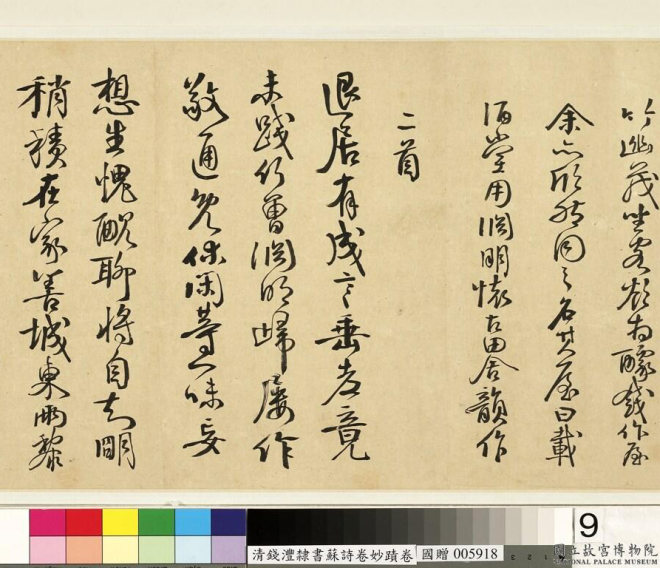 竹幽茂坐客欲為醵錢作屋
余亦欣然同之名其屋曰載
酒堂用淵明懷古田舍韻作
二首
退居有成言垂老竟
未踐何曾淵明歸屢作
敬通免休閑等一味妄
想生愧靦聊將自知明
稍積在家善城東兩黎
清錢澧隸書蘇詩卷妙蹟卷 國贈 005918
9
國立故宮博物院
NATIONAL PALACE MUSEUM